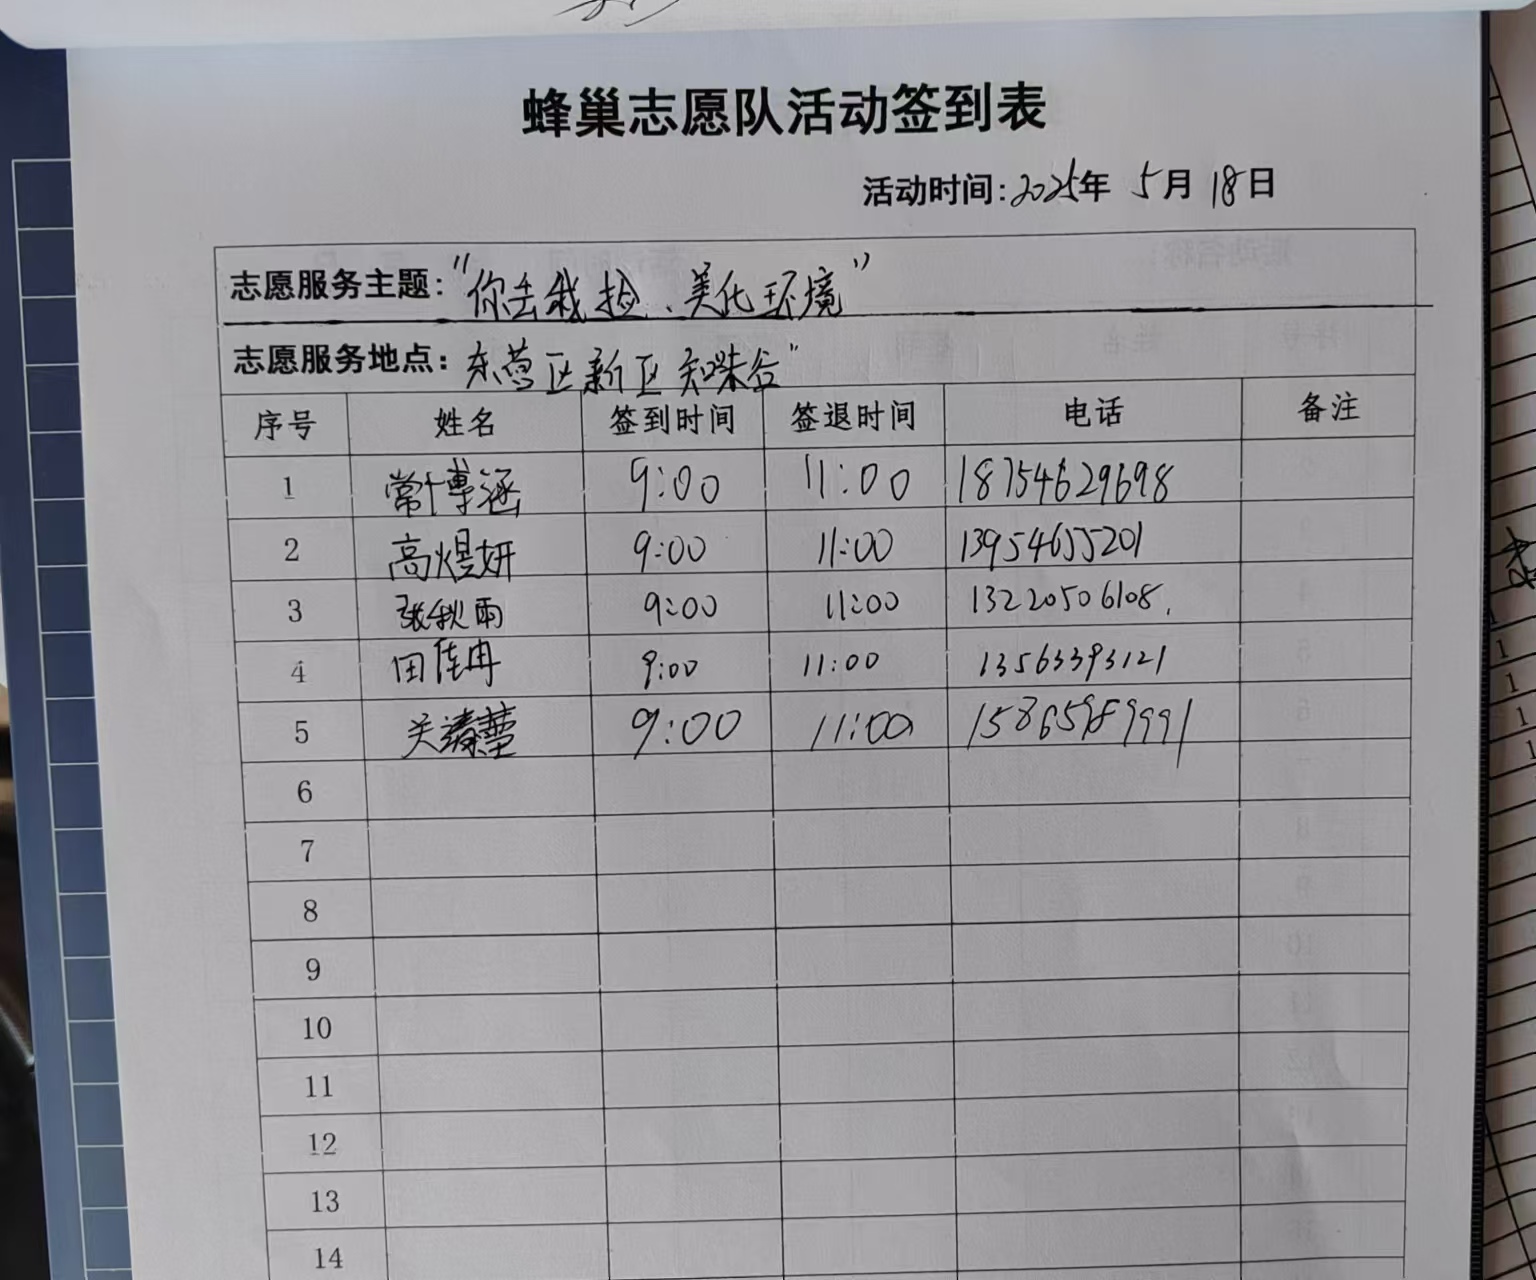 蜂巢志愿队活动签到表
活动时间:2025年 5月 18日
志愿服务主题:"你丢我捡、美化环境"
志愿服务地点:东营区新区知味谷"
序号 姓名 签到时间 签退时间 电话 备注
1 常博涵 9:00 11:00 18754629698
2 高煜妍 9:00 11:00 13954655201
3 张秋雨 9:00 11:00 13220506108.
4 田佳冉 9:00 11:00 13563393121
5 关 9:00 11:00 15865989991
6
7
8
9
10
11
12
13
14